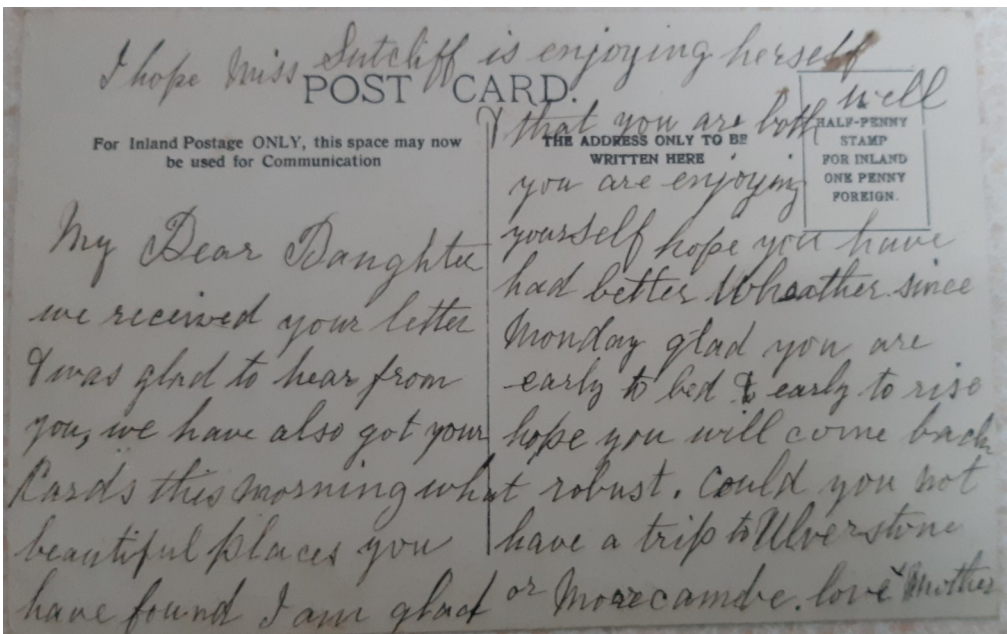 I hope Miss Sutcliff is enjoying herself
well
POST CARD.
For Inland Postage ONLY, this space may now
be used for Communication
THE ADDRESS ONLY TO BE
WRITTEN HERE
A
HALF-PENNY
STAMP
FOR INLAND
ONE PENNY
FOREIGN.
My Dear Daughter
we received your letter
& was glad to hear from
you, we have also got your
Cards this morning what
beautiful places you
have found I am glad
& that you are both
you are enjoying
yourself hope you have
had better Wheather since
Monday glad you are
early to bed & early to rise
hope you will come back
robust. Could you not
have a trip to Ulverstone
or Morecambe. love Mother